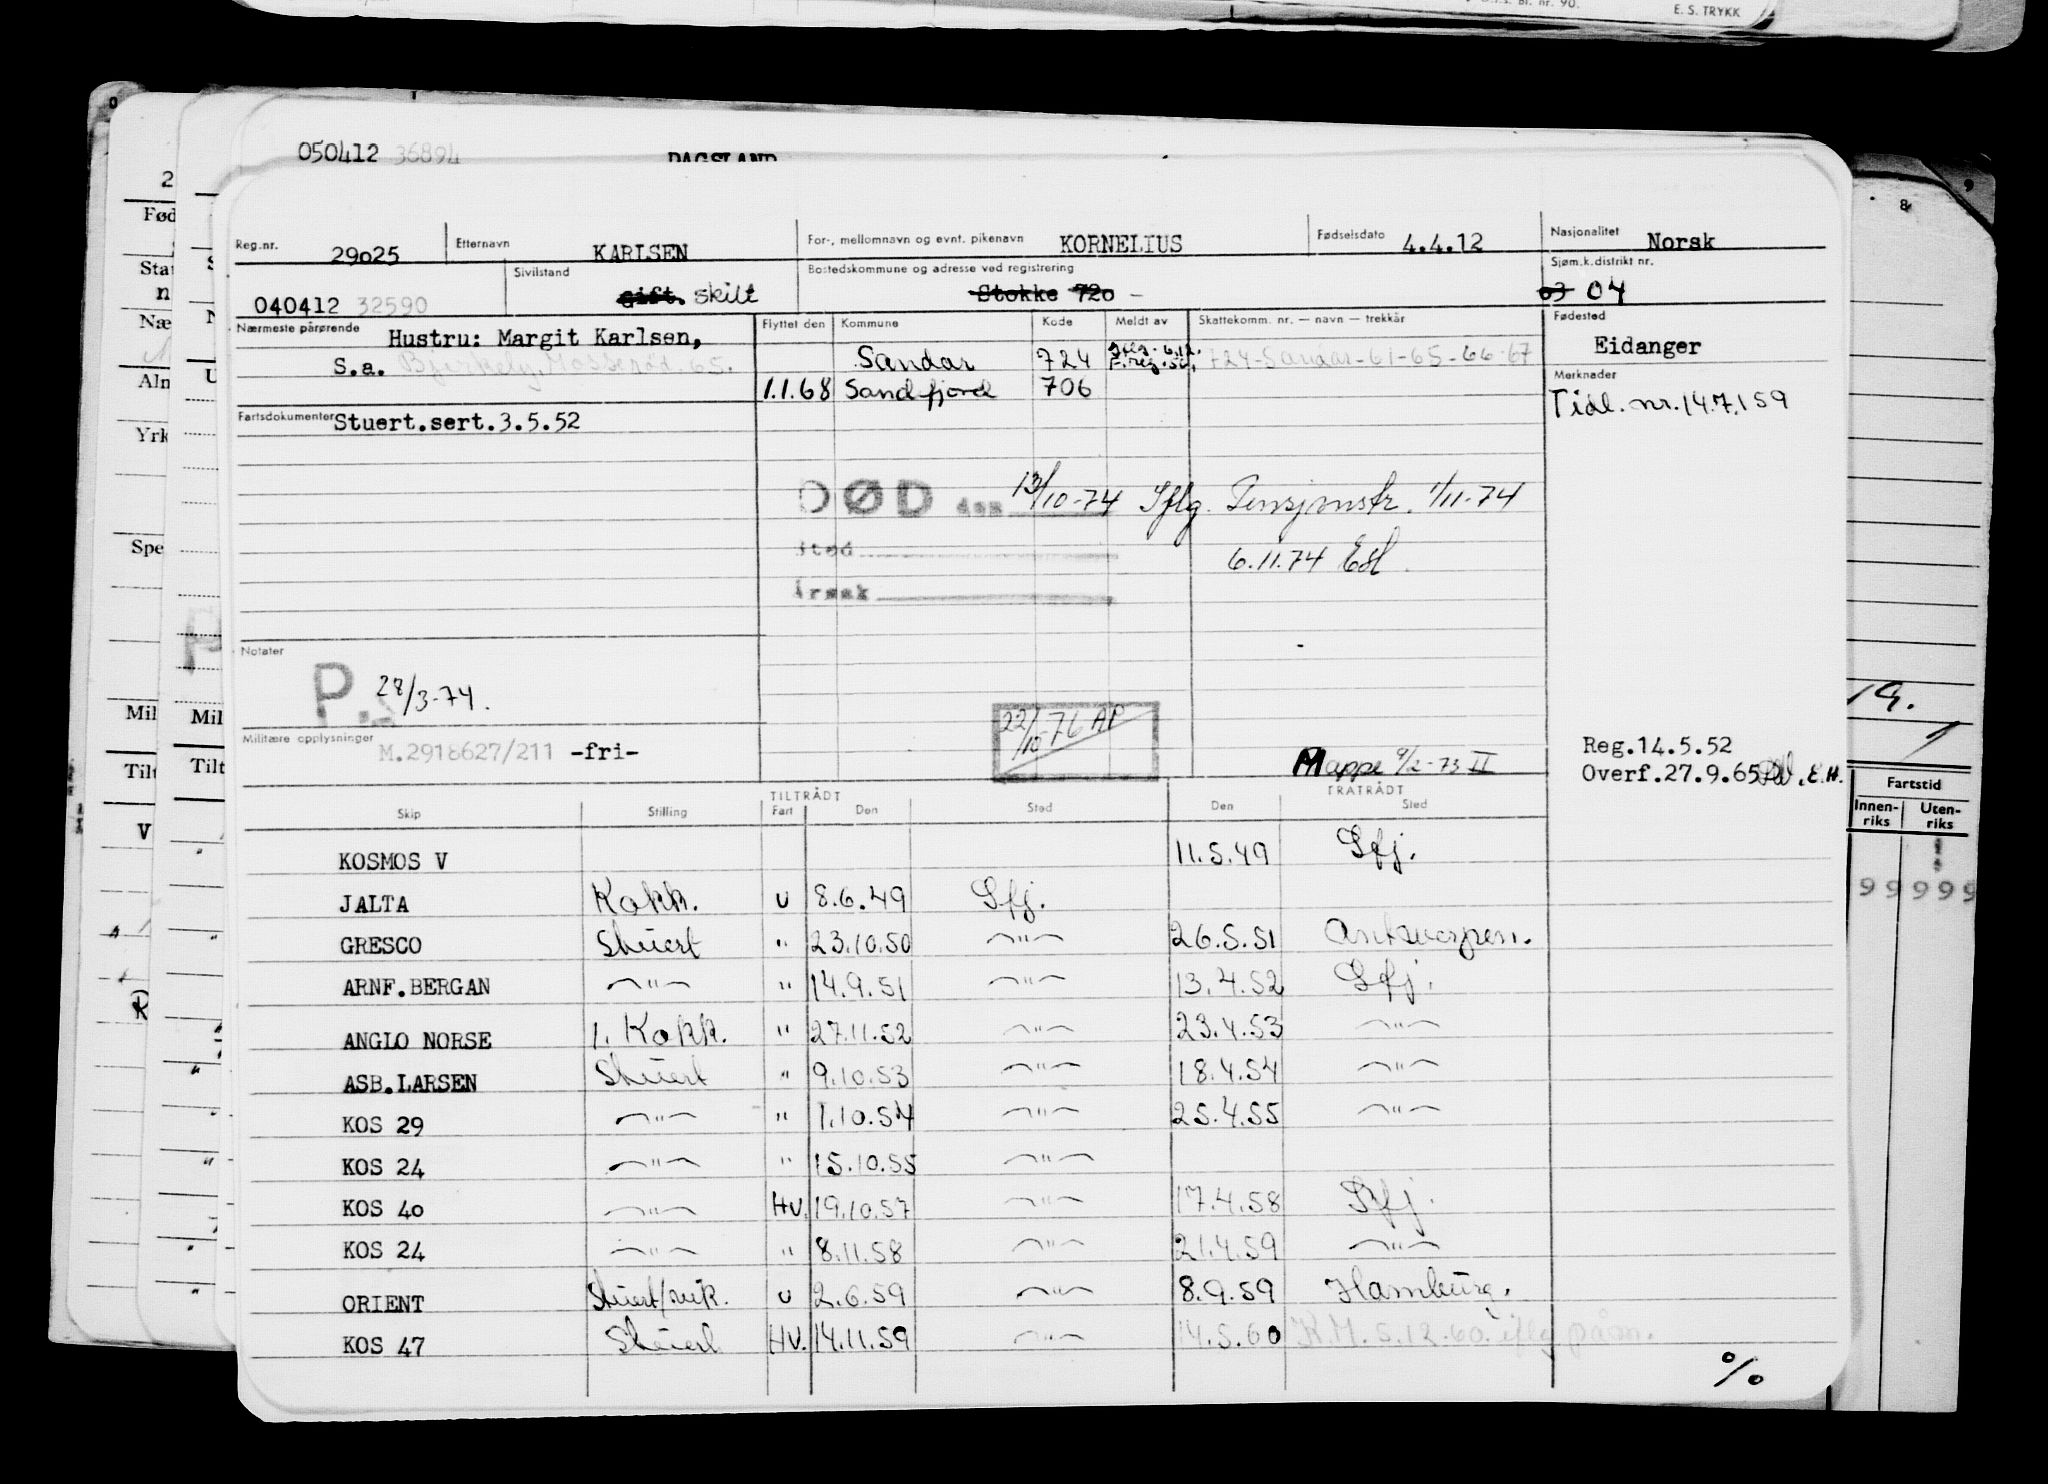 E. S. TRYKK
050412 36894
DAGSLAND
Reg.nr. 29o25 Etternavn KARLSEN For-, mellomnavn og evnt. pikenavn KORNELIUS Fødselsdato 4.4.12 Nasjonalitet Norsk
040412 32590 Sivilstand gift. skilt Bostedskommune og adresse ved registrering Stokke 72o - Sjøm.k.distrikt nr. 03 04
Nærmeste pårørende Hustru: Margit Karlsen, Flyttet den Kommune Kode Meldt av Skattekomm. nr. — navn — trekkår Fødested Eidanger
S.a. Bjerkely, Mosserød. 65. Sandar 724 724-Sandar-61-65-66-67
Merknader
1.1.68 Sandefjord 706 Tidl. nr. 147.159
Fartsdokumenter Stuert.sert.3.5.52
DØD den 13/10-74 Iflg. Pensjonstr. 1/11-74
Sted 6.11.74
Årsak
Notater
P. 28/3-74.
22/10-76 AP
Militære opplysninger M.2918627/211 -fri- Mappe 9/2-73 II
Reg.14.5.52
Overf.27.9.65 E.H.
TILTRÅDT FRATRÅDT
Skip Stilling Fart Den Sted Den Sted
KOSMOS V 11.5.49 Sfj.
JALTA Kokk. U 8.6.49 Sfj.
GRESCO Stuert " 23.10.50 —"— 26.5.51 Antwerpen.
ARNF.BERGAN —"— " 14.9.51 —"— 13.4.52 Sfj.
ANGLO NORSE 1. Kokk. " 27.11.52 —"— 23.4.53 —"—
ASB.LARSEN Stuert " 9.10.53 —"— 18.4.54 —"—
KOS 29 —"— " 1.10.54 —"— 25.4.55 —"—
KOS 24 —"— " 15.10.55 —"—
KOS 4o —"— HV. 19.10.57 —"— 17.4.58 Sfj.
KOS 24 —"— " 8.11.58 —"— 21.4.59 —"—
ORIENT Stuert/vik. U 2.6.59 —"— 8.9.59 Hamburg.
KOS 47 Stuert HV. 14.11.59 —"— 14.5.60 K.M. 5.12.60. iflg påm.
%
Fartstid
Innen-riks Uten-riks
99 999